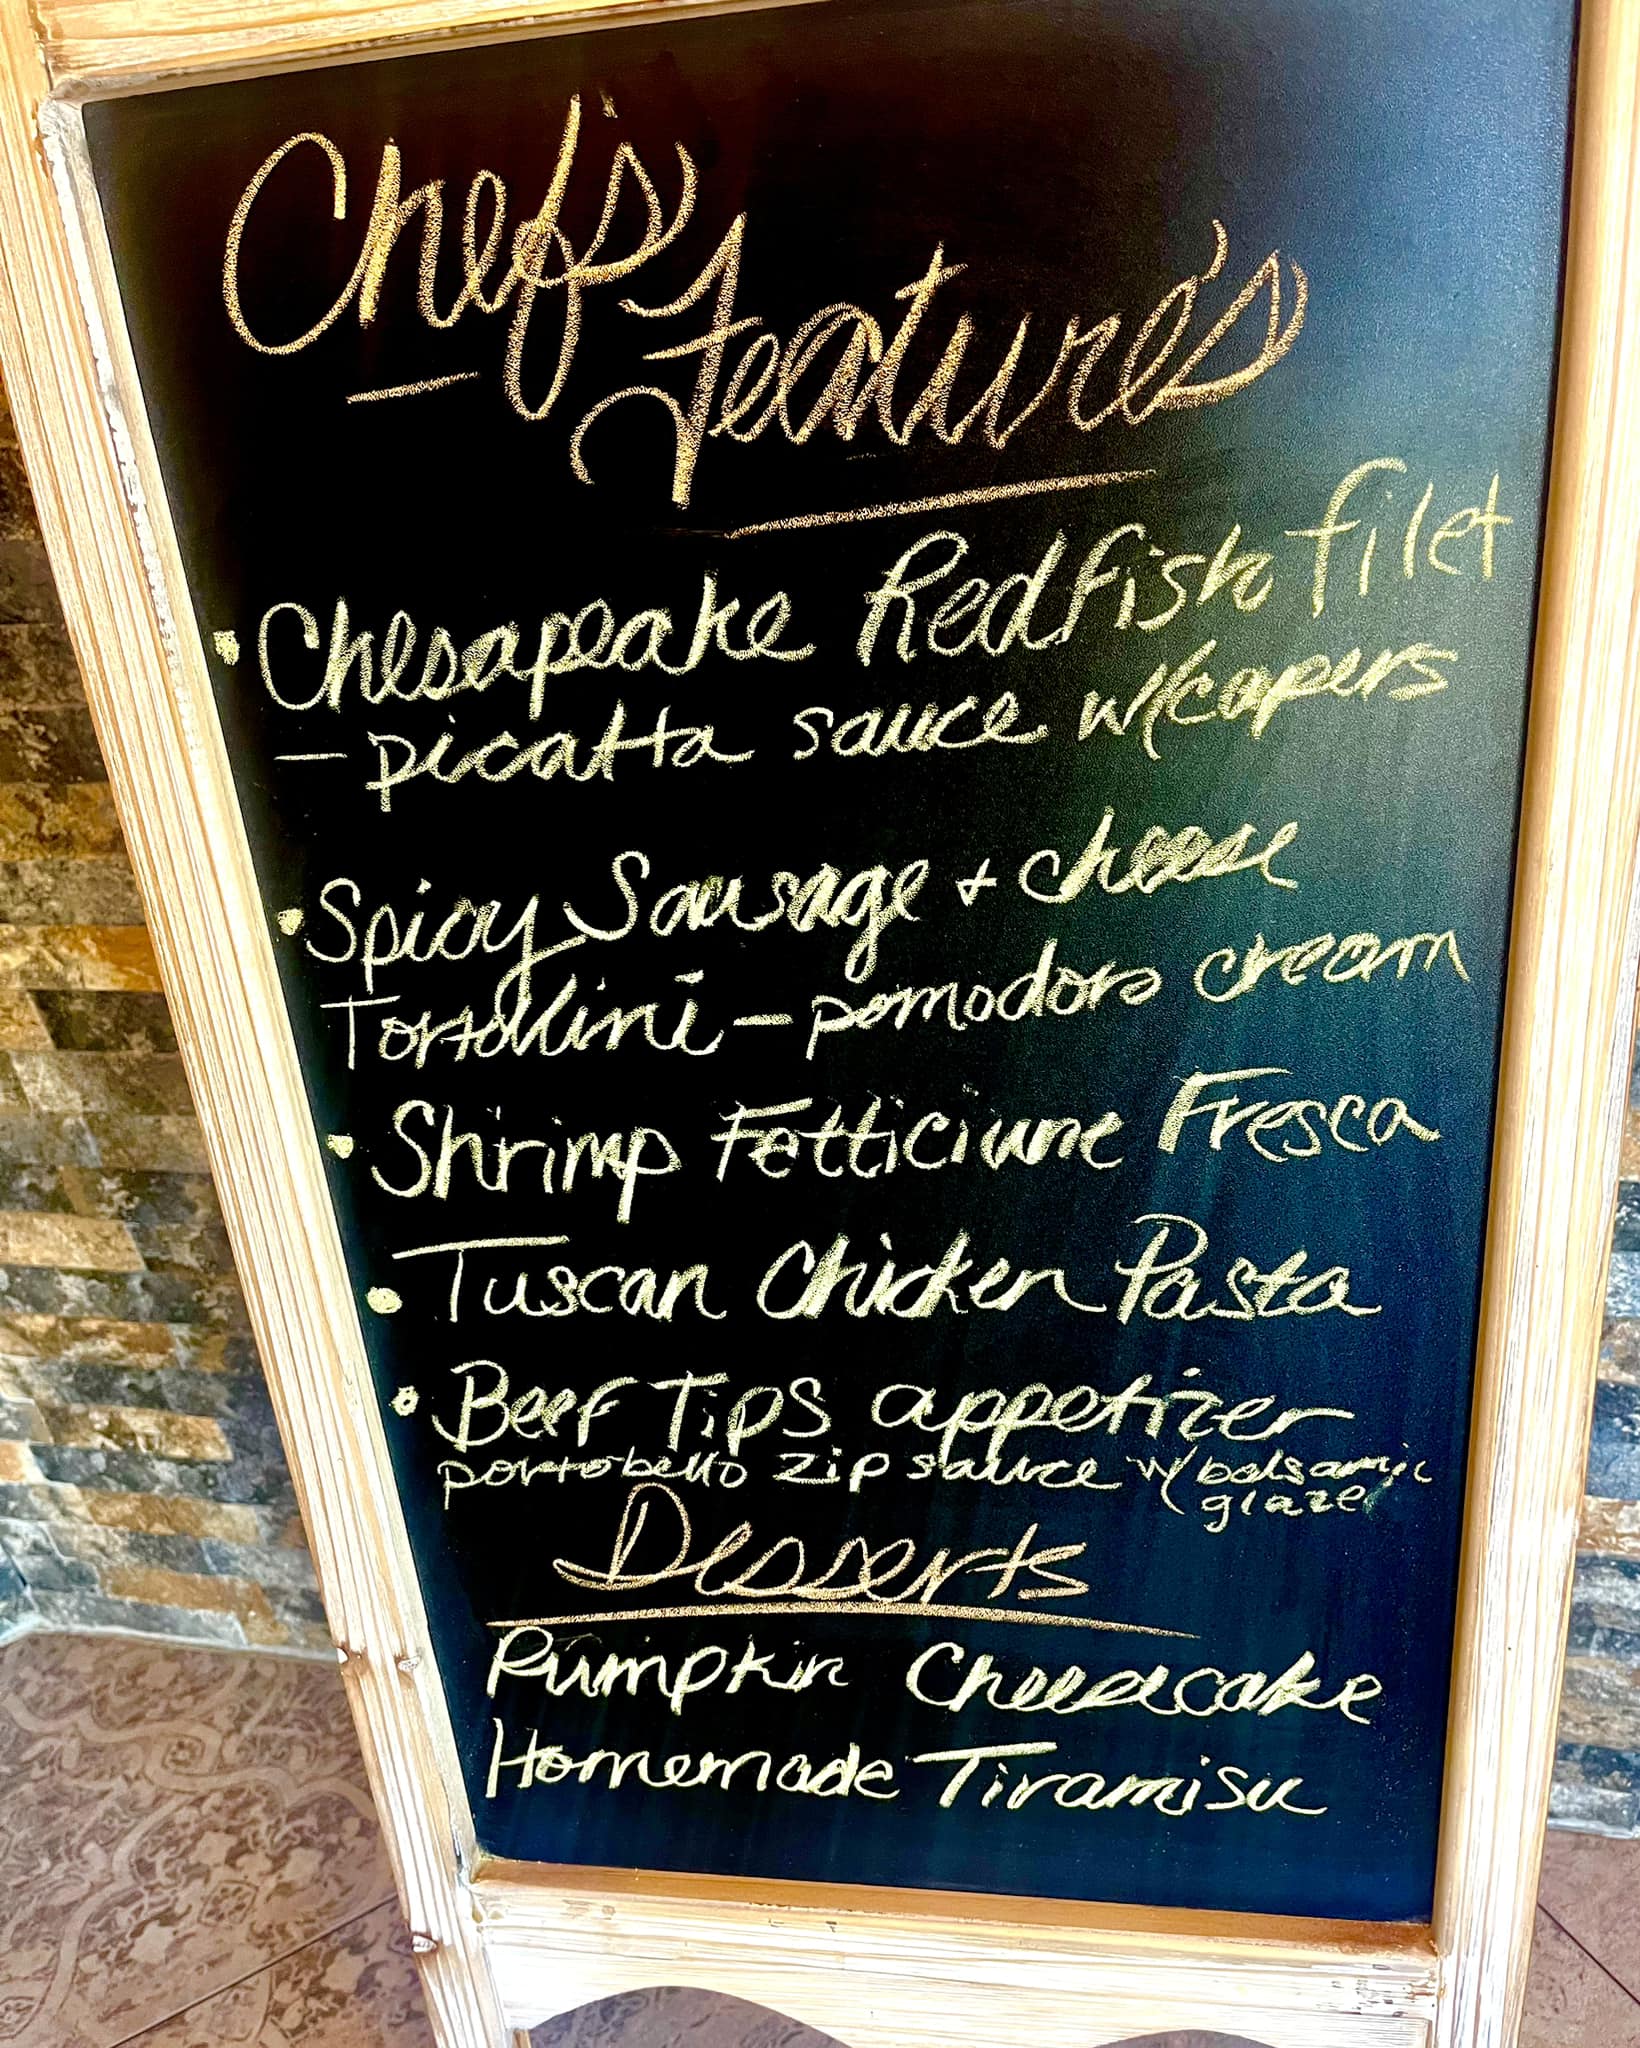 Chef's
Feature's
• Chesapeake Redfish filet
- picatta sauce w/capers
• Spicy Sausage + cheese
Tortallini - pomodoro cream
• Shrimp Fetticiune Fresca
• Tuscan Chicken Pasta
• Beef Tips appetizer
portobello zip sauce w/ balsamic
glaze
Desserts
Pumpkin Cheesecake
Homemade Tiramisu